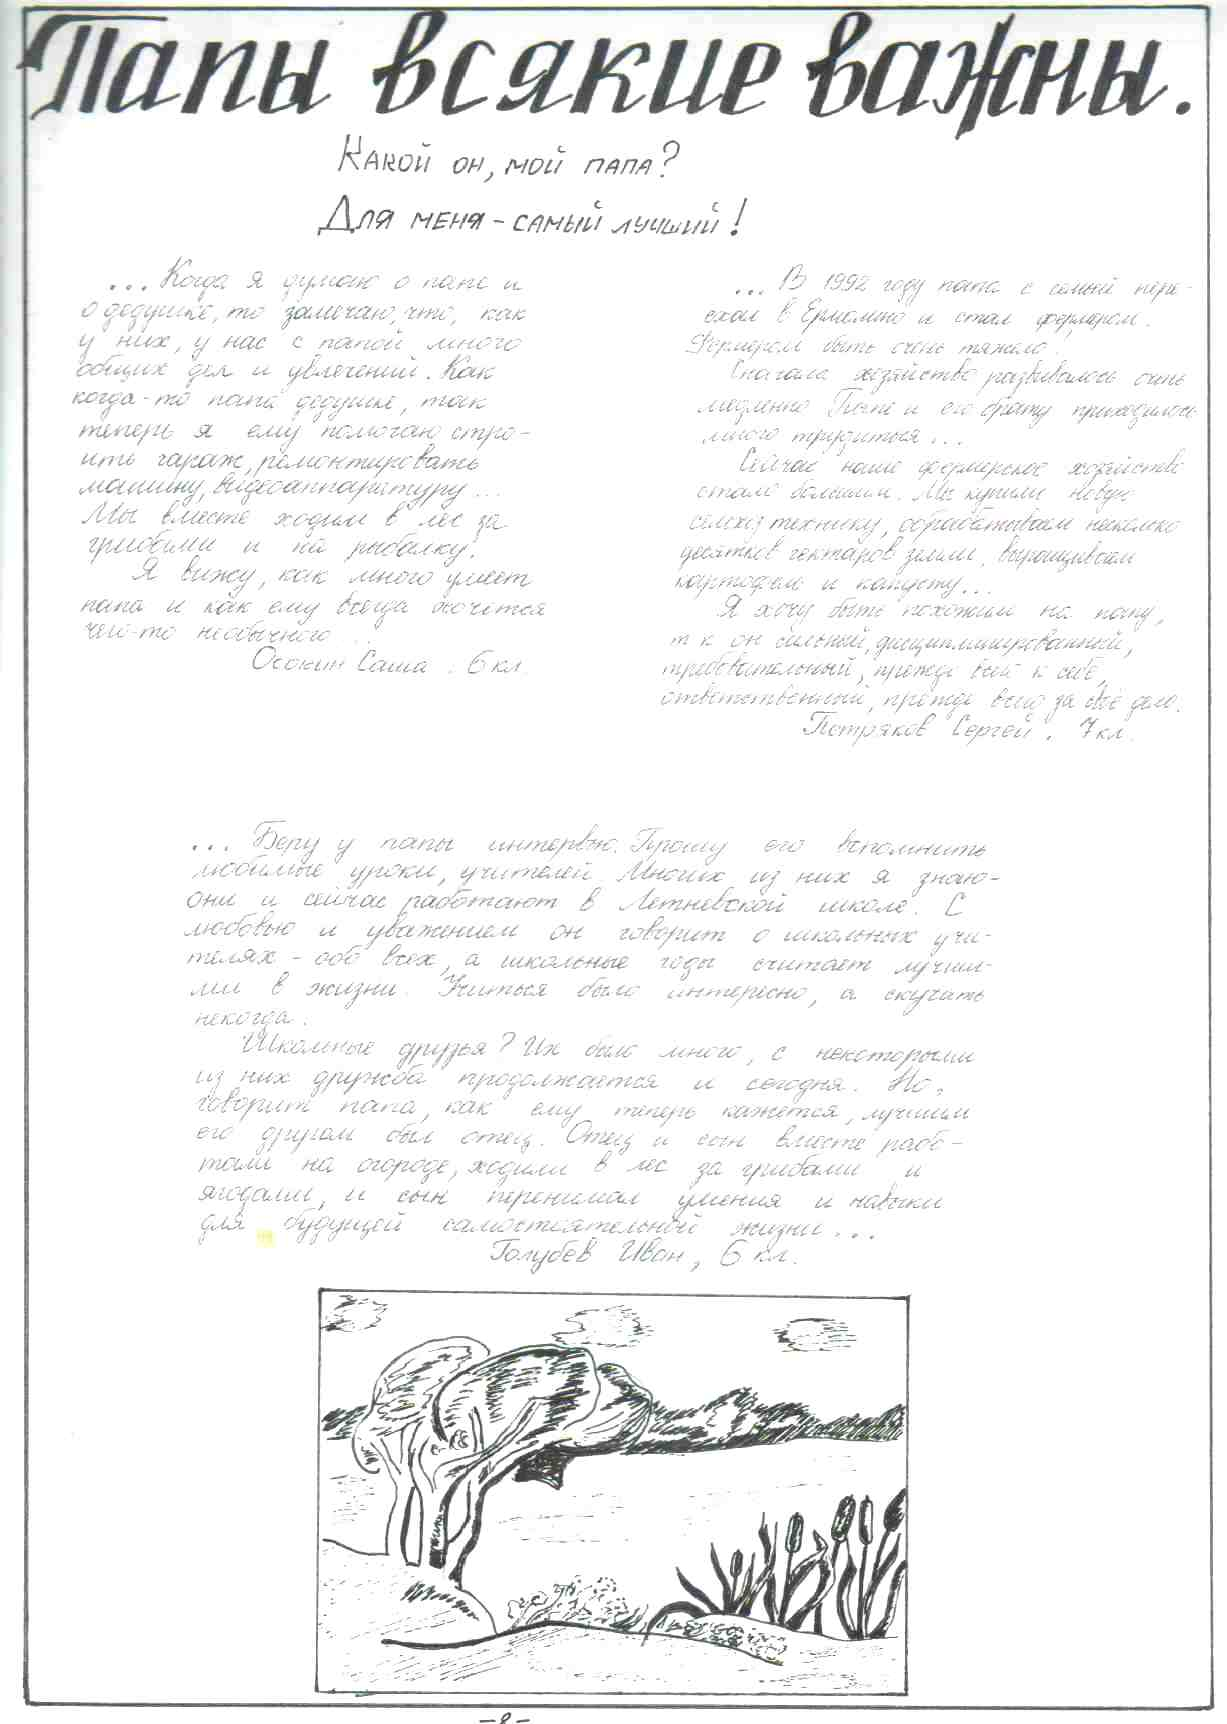 Папы всякие важны.
Какой он, мой папа?
Для меня - самый лучший!
... Когда я думаю о папе и
о дедушке, то замечаю, что, как
у них, у нас с папой много
общих дел и увлечений. Как
когда-то папа дедушке, так
теперь я ему помогаю стро-
ить гараж, ремонтировать
машину, видеоаппаратуру...
Мы вместе ходим в лес за
грибами и на рыбалку.
Я вижу, как много умеет
папа и как ему всегда хочется
чего-то необычного...
Осокин Саша. 6 кл.
... В 1992 году папа с семьёй пере-
ехал в Ермолино и стал фермером.
Фермером быть очень тяжело.
Сначала хозяйство развивалось очень
медленно Папе и его брату приходилось
много трудиться...
Сейчас наше фермерское хозяйство
стало большим. Мы купили новую
сельхоз технику, обрабатываем несколько
десятков гектаров земли, выращиваем
картофель и капусту...
Я хочу быть похожим на папу,
т к он сильный, дисциплинированный,
требовательный, прежде всего к себе,
ответственный, прежде всего за своё дело.
Петряков Сергей. 7 кл.
... Беру у папы интервью. Прошу его вспомнить
любимые уроки, учителей. Многих из них я знаю-
они и сейчас работают в Летневской школе. С
любовью и уважением он говорит о школьных учи-
телях - обо всех, а школьные годы считает лучши-
ми в жизни. Учиться было интересно, а скучать
некогда.
Школьные друзья? Их было много, с некоторыми
из них дружба продолжается и сегодня. Но,
говорит папа, как ему теперь кажется, лучшим
его другом был отец. Отец и сын вместе рабо-
тали на огороде, ходили в лес за грибами и
ягодами, и сын перенимал умения и навыки
для будущей самостоятельной жизни...
Голубев Иван, 6 кл.
-8-